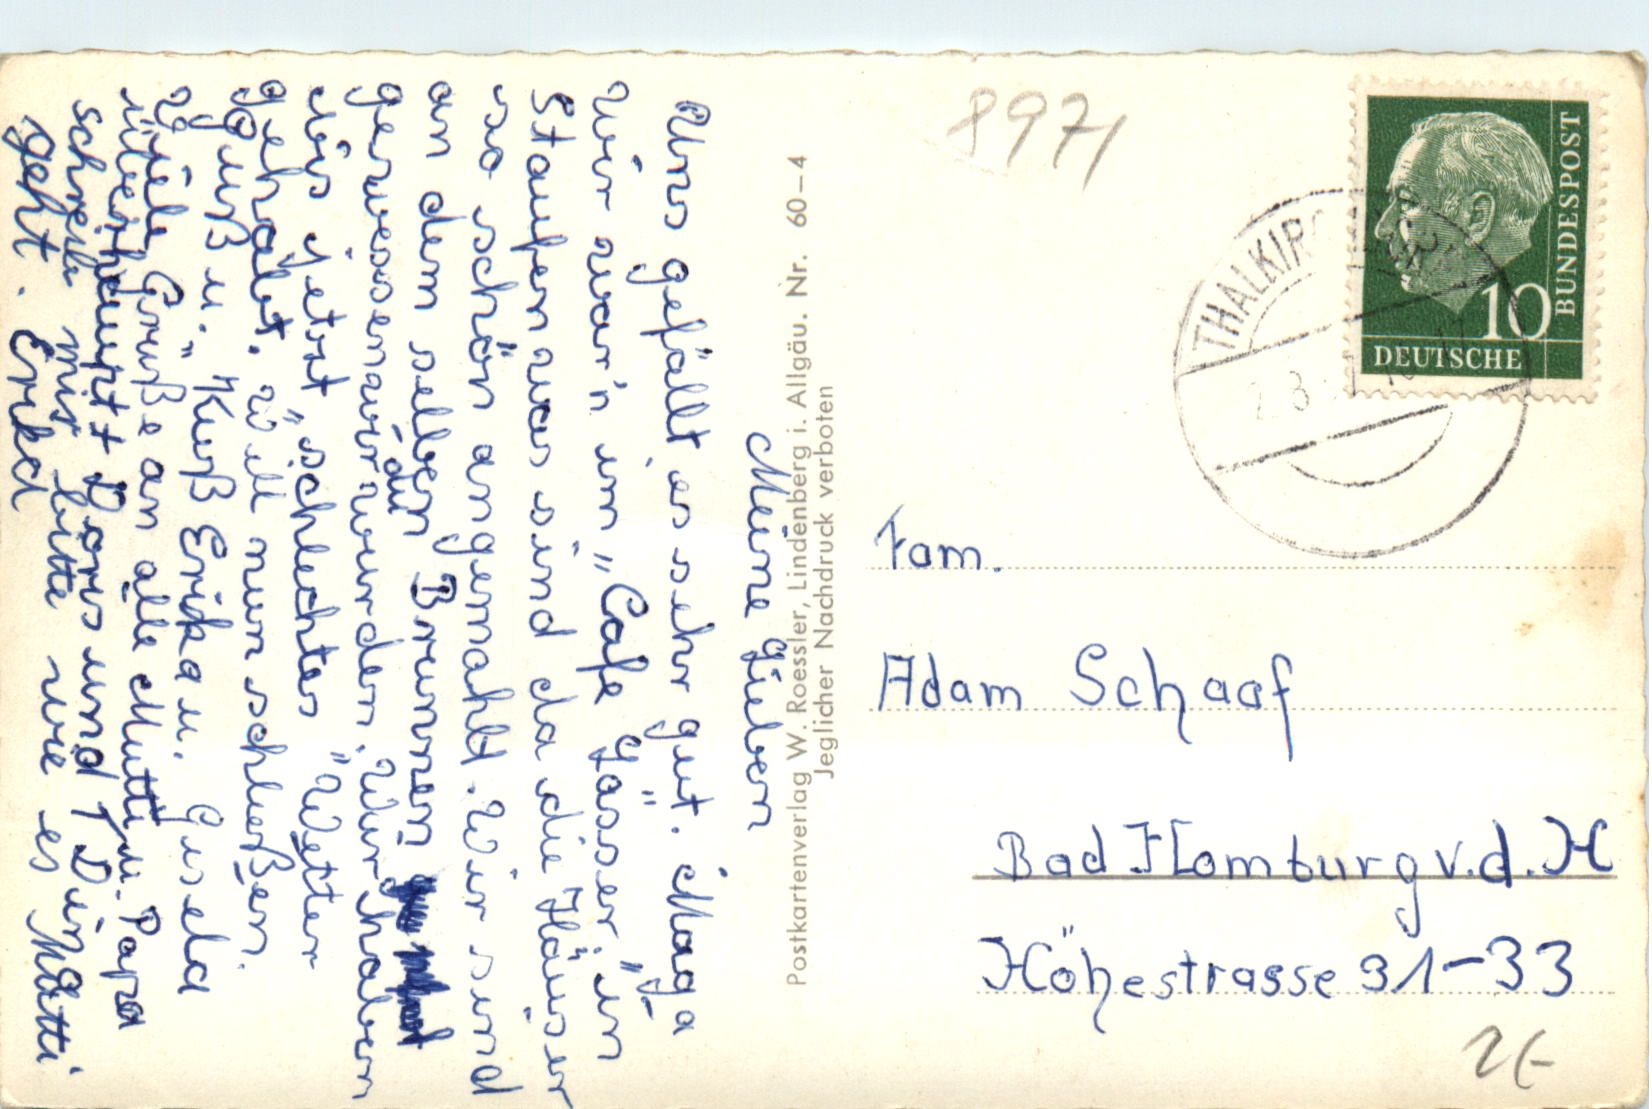 Meine Lieben
Uns gefällt es sehr gut.
Wir war'n im „Cafe Gässer" in
Staufen was sind da die Häuser
so schön angemahlt. Wir sind
an dem selben Brunnen
gewesen an dir wurden. Wir haben
bis jetzt "schlechtes "Wetter
gehabt. Will nun schleßen.
Gruß u." Kuß Erika u. Gisela
Viele Grüße an alle Mutti u. Papa
überhaupt Doris und
schreib mir bitte wie es Mutti
geht. Erika
Postkartenverlag W. Roessler, Lindenberg i. Allgäu. Nr. 60–4
Jeglicher Nachdruck verboten
8971
THALKIR
DEUTSCHE
BUNDESPOST
10
Fam.
Adam Schaaf
Bad Homburg v.d.H
Höhestrasse 31-33
2€